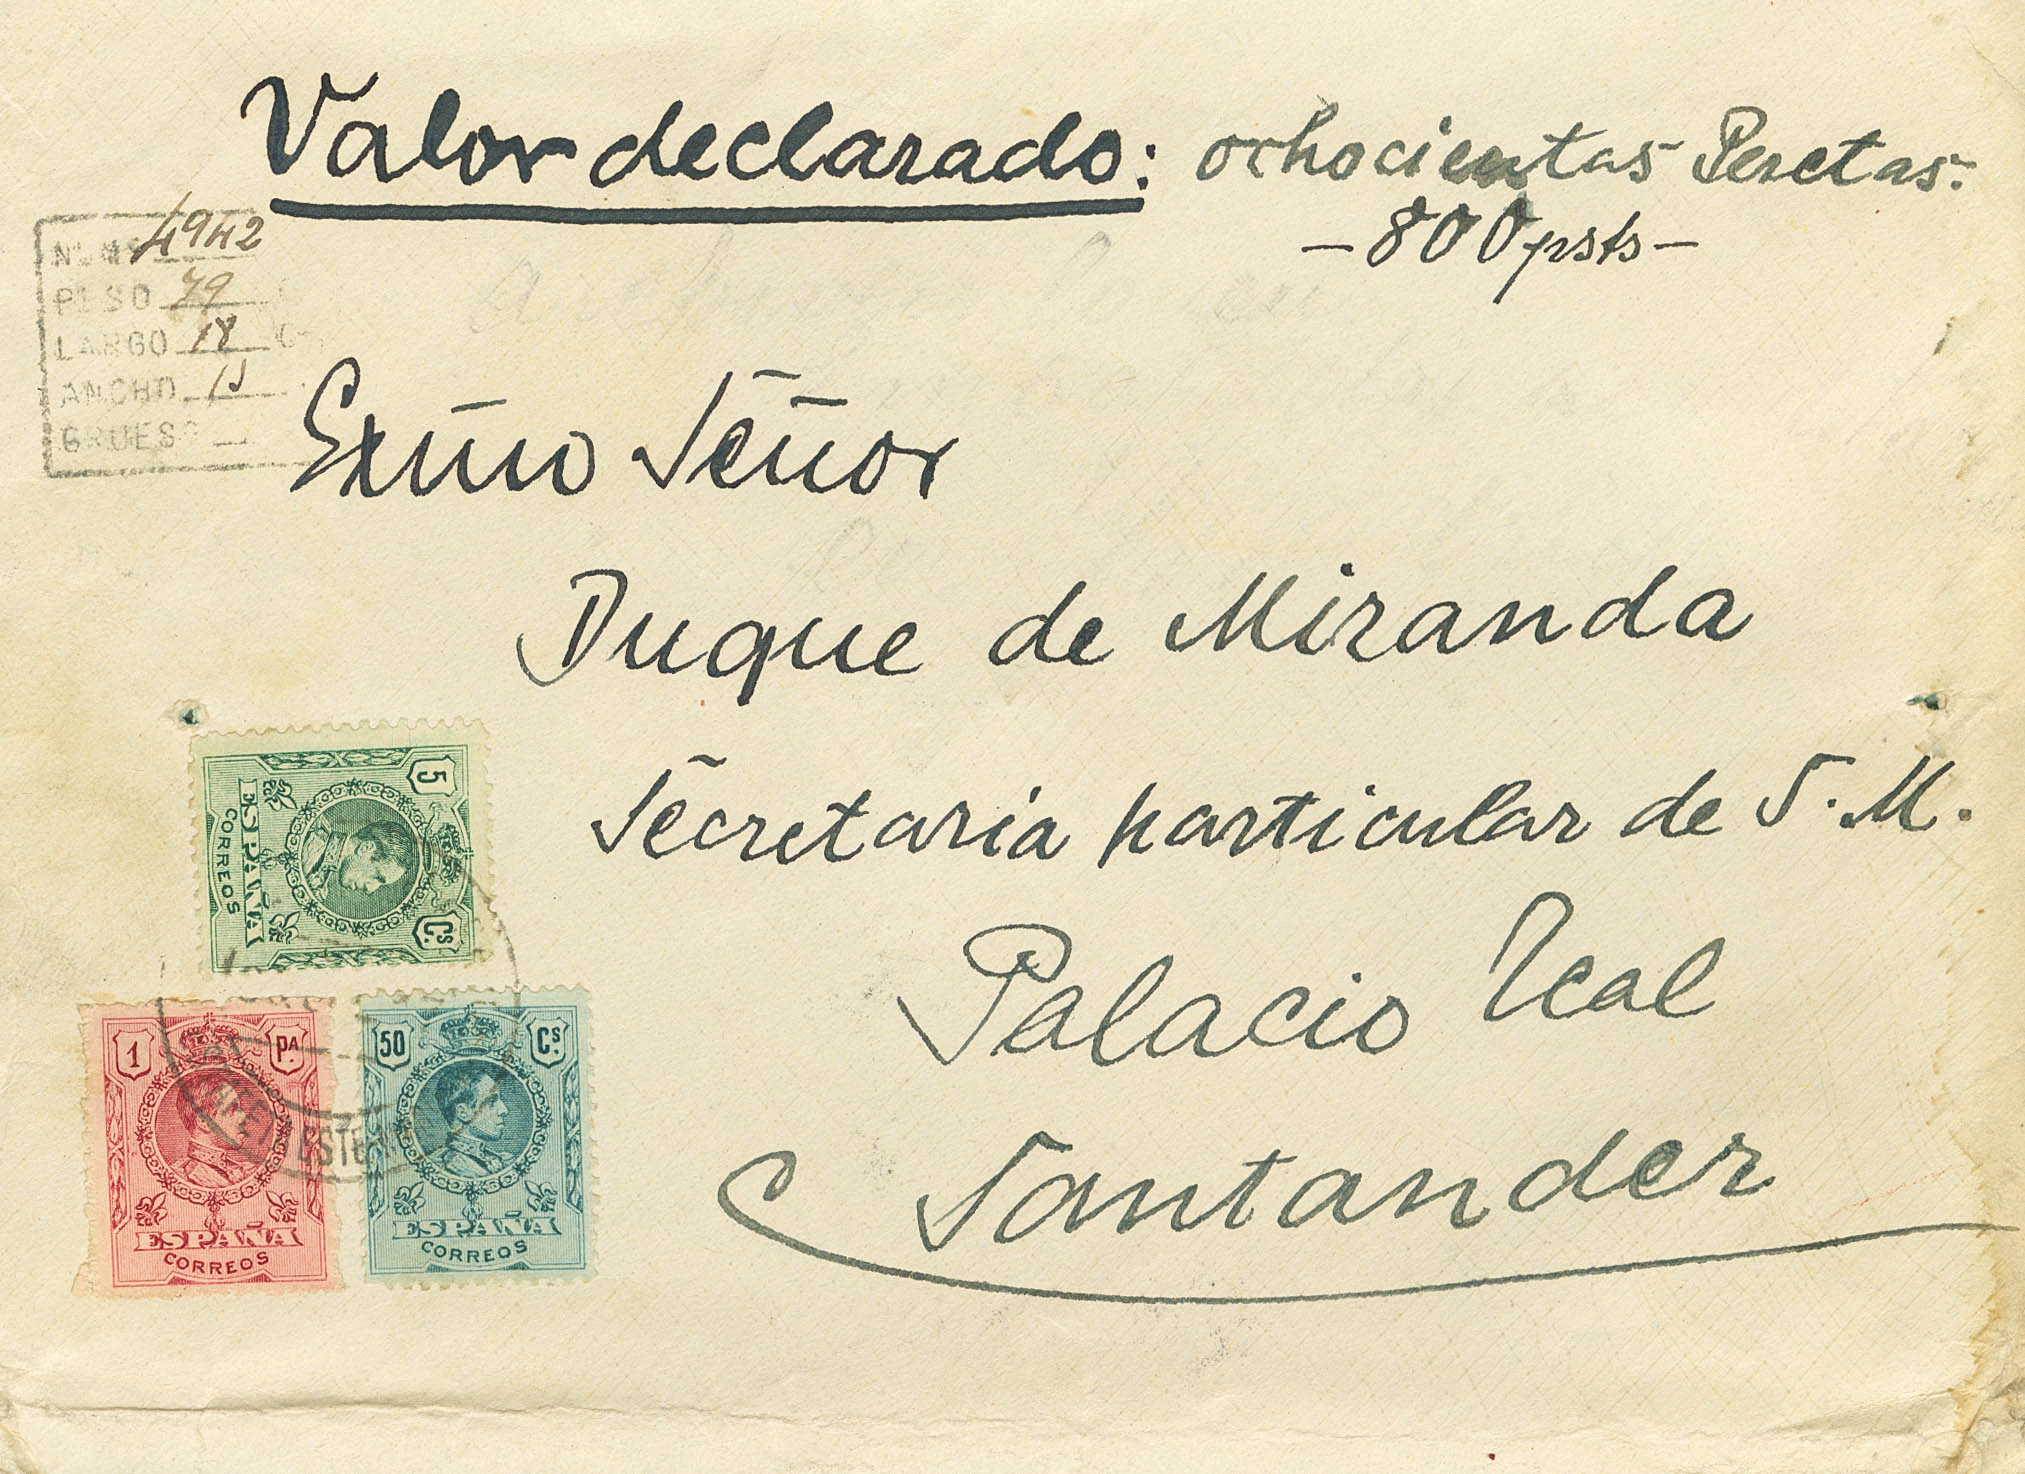 Valor declarado: ochocientas Pesetas.
- 800 psts -
4942
PESO 79
LARGO 18
ANCHO
GRUESO
Exmo Señor
Duque de Miranda
Secretaria particular de S. M.
Palacio Real
Santander
5 Cs
ESPAÑA
CORREOS
1 PA
ESPAÑA
CORREOS
50 Cs
ESPAÑA
CORREOS